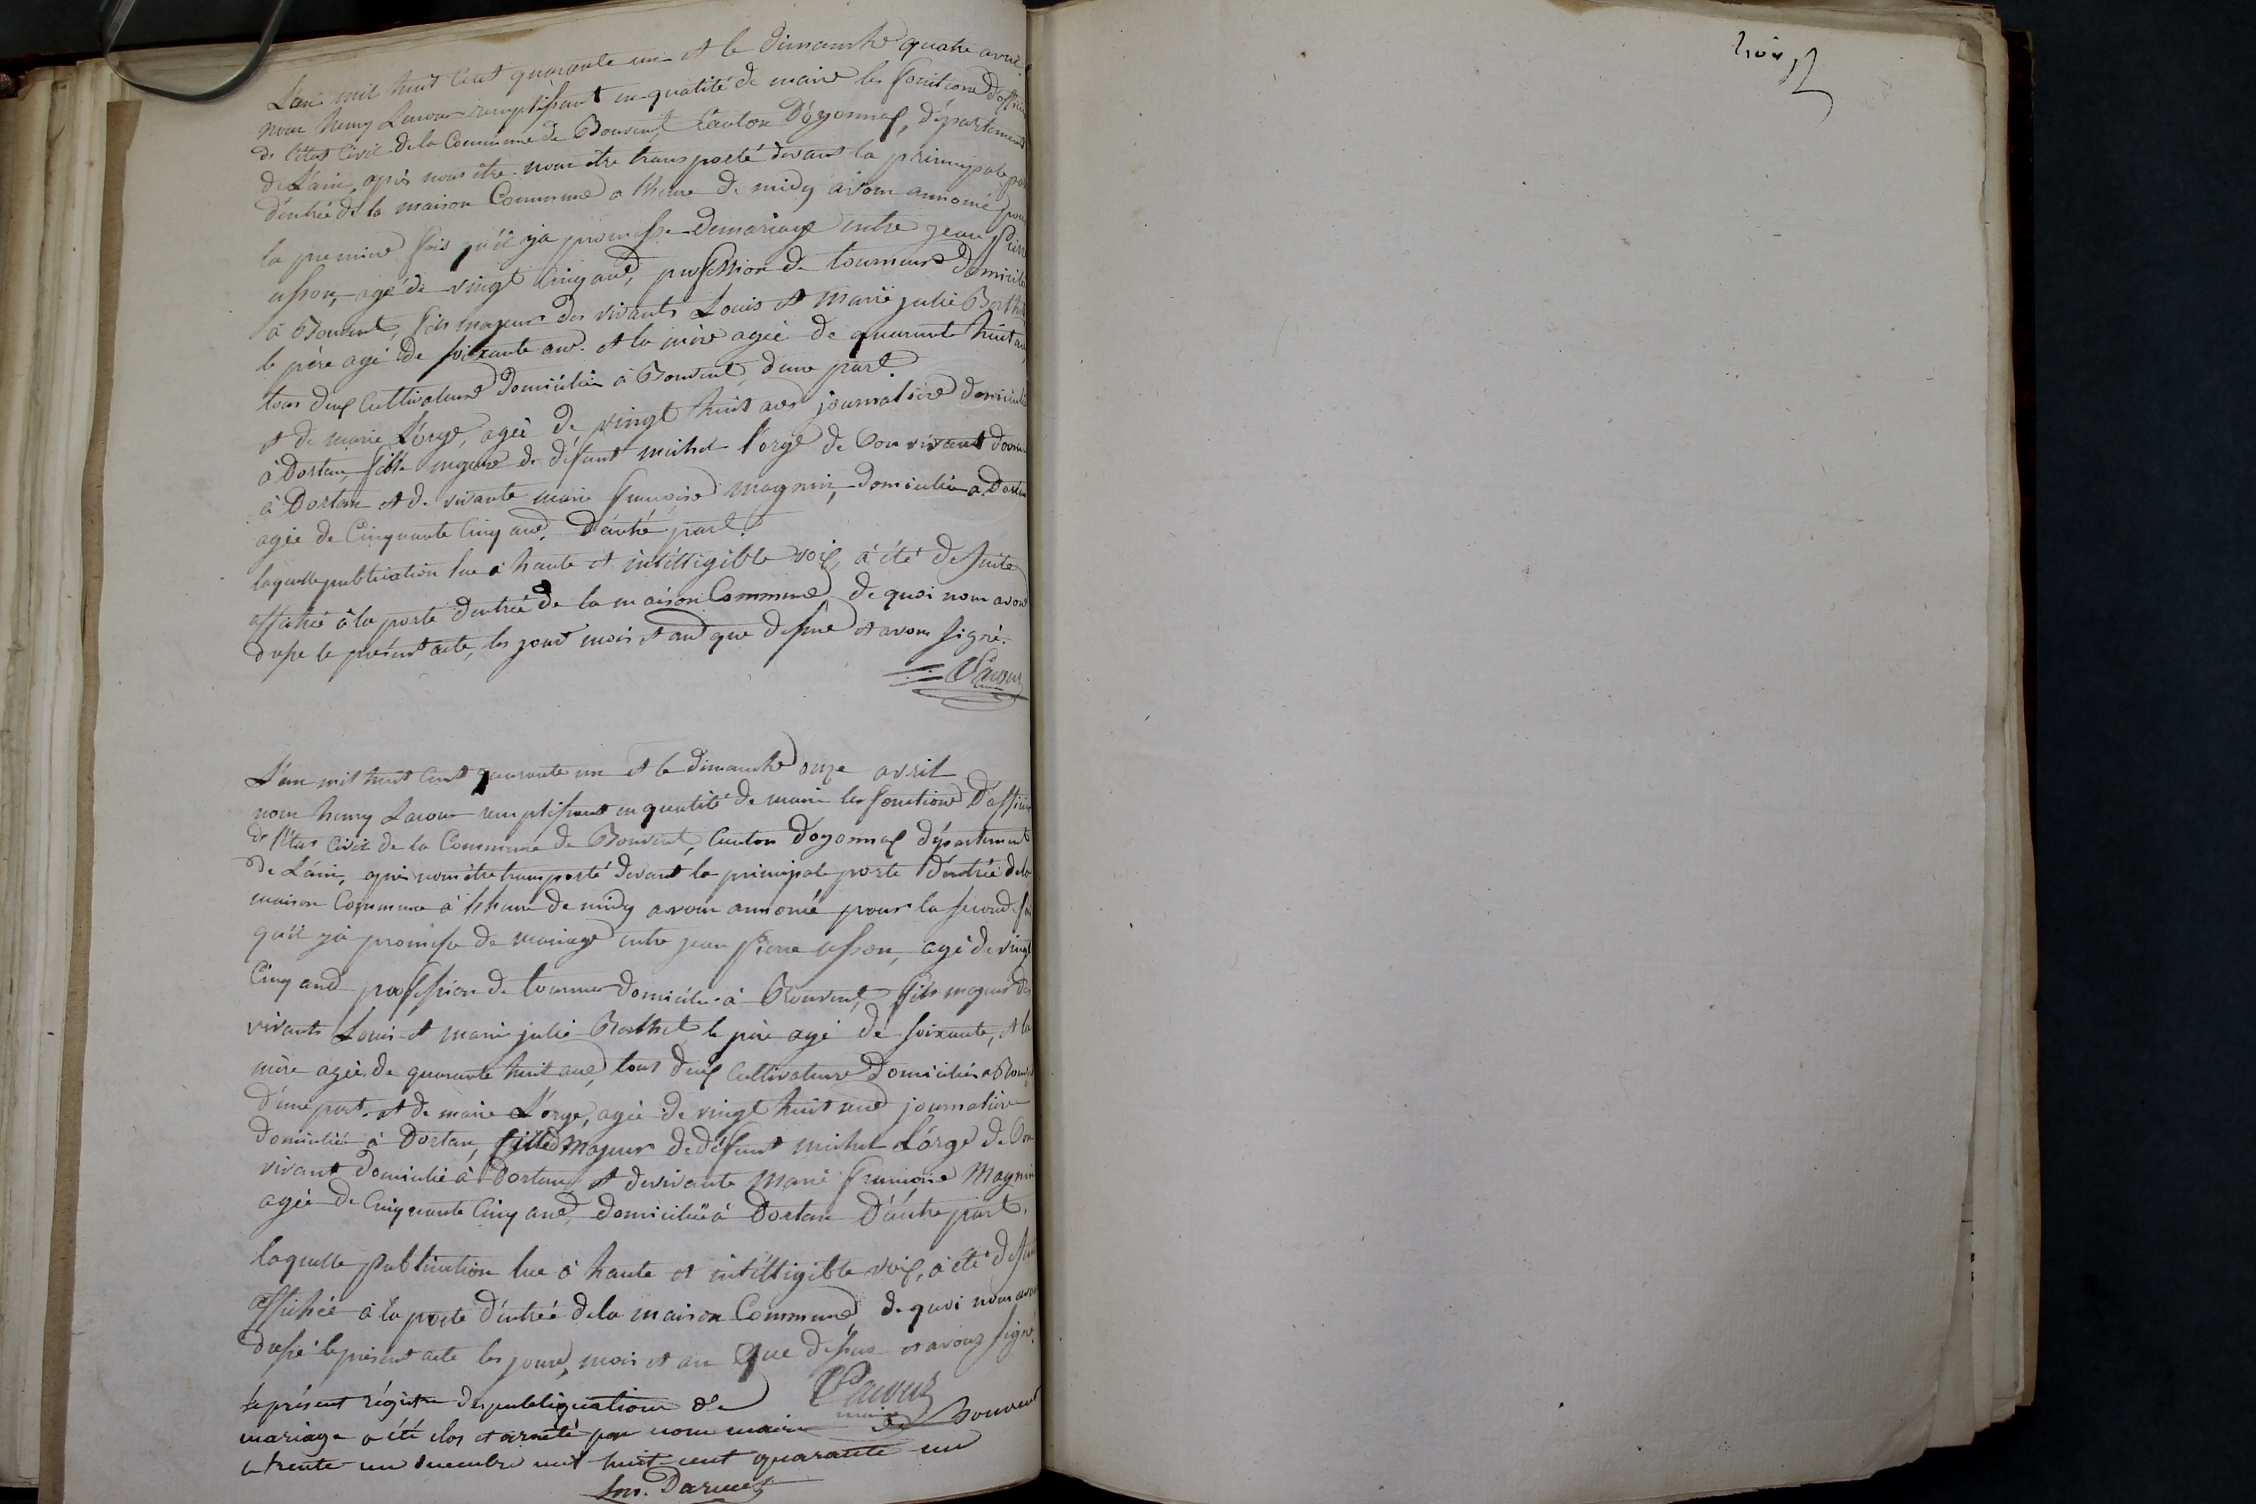 L'an mil huit cent quarante un et le dimanche quatre avril
nous henry Lacour remplissant en qualité de maire les fonctions d'officier
de l'état civil de la Commune de Bouvent, Canton D'oyonnax, département
de L'ain, après nous être nous être transporté devant la principale porte
d'entrée de la maison Commune a l'heure de midy avons annoncé pour
la premiere fois qu'il y a promesse de mariage entre jean Pierre
usson, agé de vingt cinq ans, profession de tourneur domicilié
à Bouvent, fils majeur des vivants Louis et marie julie Berthet
le père agé de soixante ans. et la mère agée de quarante huit ans,
tous deux Cultivateurs domiciliés à Bouvent, d'une part
et de marie L'orge, agée de vingt huit ans journalière domiciliée
à Dortan, fille majeure de défunt michel l'orge de son vivant
à Dortan et de vivante marie françoise magnin, domiciliée a Dortan
agée de Cinquante Cinq ans, D'autre part.
laquelle publication lue à haute et intélligible voix, à été de suite
affichée à la porte d'entrée de la maison Commune, de quoi nous avons
dressé le présent acte, les jour mois et an que dessus et avons signé.
Lacour
L'an mil huit cent quarante un et le dimanche onze avril
nous henry Lacour remplissant en qualité de maire les fonctions D'officier
de l'état civil de la Commune de Bouvent, Canton d'oyonnax département
de L'ain, après nous être transporté devant la principale porte d'entrée de la
maison Commune à l'heure de midy avons annoncé pour la seconde fois
qu'il y à promesse de mariage entre jean Pierre usson, agé de vingt
Cinq ans profession de tourneur domicilié à Bouvent, fils majeur des
vivants Louis et marie julie Berthet, le père agé de soixante, et la
mère agée de quarante huit ans, tous deux Cultivateurs domiciliés a Bouvent
d'une part. et de marie L'orge, agée de vingt huit ans journalière
domiciliée à Dortan, fille Majeur de défunt michel L'orge de son
vivant domicilié à Dortan et de vivante Marie françoise Magnin
agée de Cinquante Cinq ans, domiciliée à Dortan D'autre part.
laquelle Publication lue à haute et intélligible voix, à été de suite
affichée à la porte d'entrée de la maison Commune, de quoi nous avons
dressé le présent acte les jours, mois et an que dessus et avons signé.
Lacour
maire
le présent régistre des publiquations de
mariage a été clos et arreté par nous maire de Bouvent
le trente un decembre mil huit cent quarante un
Darmet
trois